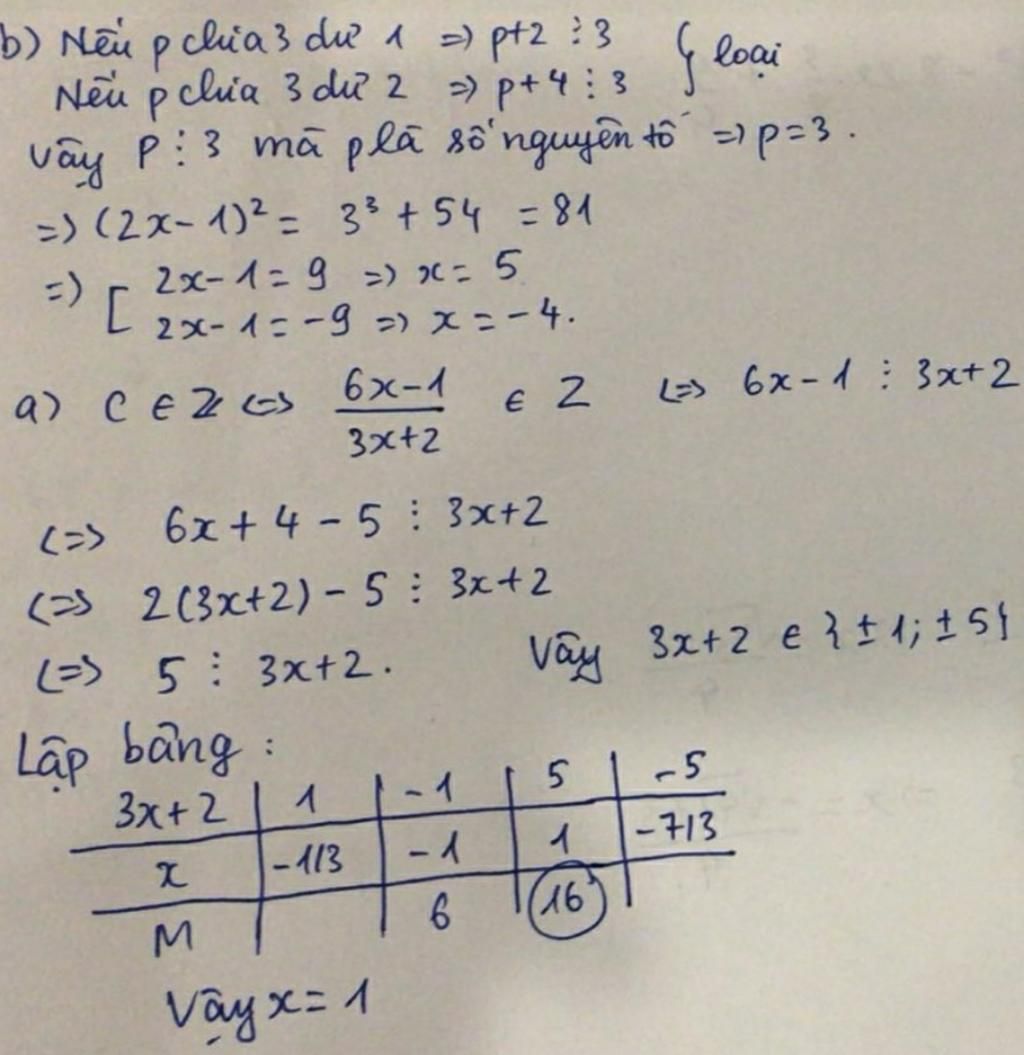 b) Nếu p chia 3 dư 1 => p+2 ⋮ 3 } loại
Nếu p chia 3 dư 2 => p+4 ⋮ 3
Vậy p ⋮ 3 mà p là số nguyên tố => p=3.
=> (2x-1)² = 3³ + 54 = 81
=> [ 2x-1 = 9 => x = 5
2x-1 = -9 => x = -4.
a) C ∈ Z <=> (6x-1)/(3x+2) ∈ Z <=> 6x-1 ⋮ 3x+2
<=> 6x+4-5 ⋮ 3x+2
<=> 2(3x+2)-5 ⋮ 3x+2
<=> 5 ⋮ 3x+2. Vậy 3x+2 ∈ {±1; ±5}
Lập bảng:
3x+2 | 1 | -1 | 5 | -5
x | -1/3 | -1 | 1 | -7/3
M | | 6 | 16 |
Vậy x = 1